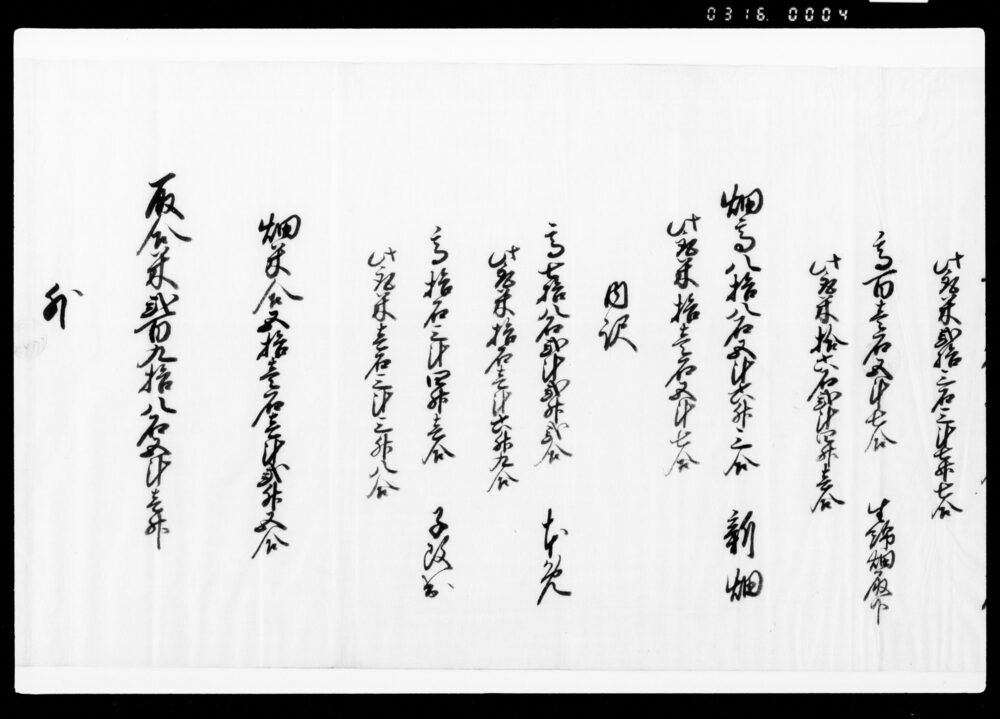 0316. 0004
此取米弐拾三石三斗七升七合
高百壱石五斗七合 生綿畑取下
此取米拾六石弐斗四升壱合
畑高八拾八石五斗六升三合 新畑
此取米拾壱石五斗七合
内訳
高七拾八石弐斗弐升弐合 本免
此取米拾石壱斗六升九合
高拾石三斗四升壱合 子改出
此取米壱石三斗三升八合
畑米合五拾壱石壱斗弐升五合
取合米弐百九拾八石五斗壱升
外